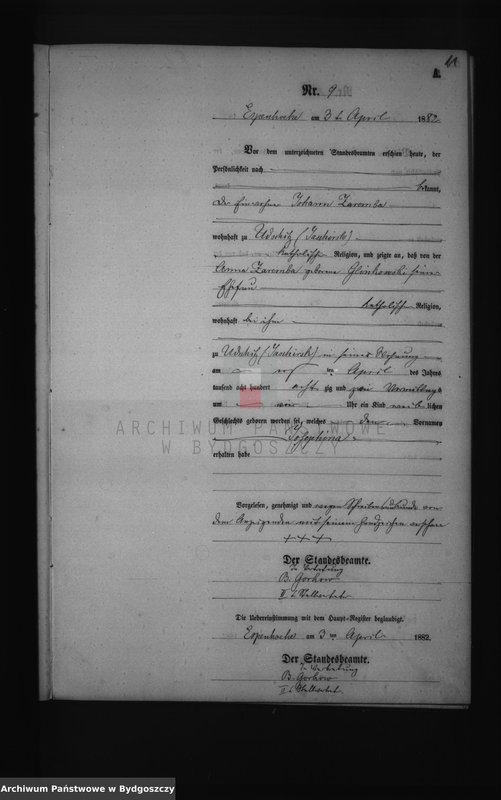 11
A.
Nr. 9
Espenhöhe am 3 ten April 1882
Vor dem unterzeichneten Standesbeamten erschien heute, der
Persönlichkeit nach
bekannt,
Der Einwohner Johann Zaremba
wohnhaft zu
katholischer Religion, und zeigte an, daß von der
Anna Zaremba geborene seiner
Ehefrau
katholischer Religion,
wohnhaft bei ihm
zu in seiner Wohnung
am ten April des Jahres
tausend acht hundert achtzig und zwei Vormittags
um vier Uhr ein Kind weiblichen
Geschlechts geboren worden sei, welches den Vornamen
Josephina
erhalten habe
Vorgelesen, genehmigt und wegen Schreibensunkunde von
dem Anzeigenden mit seinem Handzeichen versehen
+++
Der Standesbeamte.
In Vertretung
B. Gorkow
II. Stellvertreter
Die Uebereinstimmung mit dem Haupt-Register beglaubigt.
Espenhöhe am 3 ten April 1882.
Der Standesbeamte.
In Vertretung
B. Gorkow
II. Stellvertret.
ARCHIWUM PAŃSTWOWE
W BYDGOSZCZY
Archiwum Państwowe w Bydgoszczy